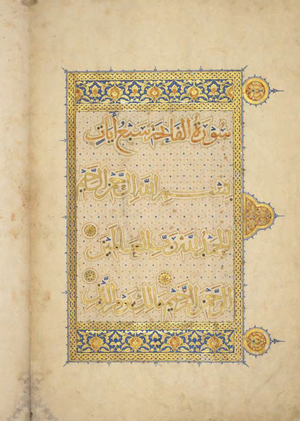 سورة الفاتحة سبع آيات
بسم الله الرحمن الرحيم
الحمد لله رب العالمين
الرحمن الرحيم مالك يوم الدين